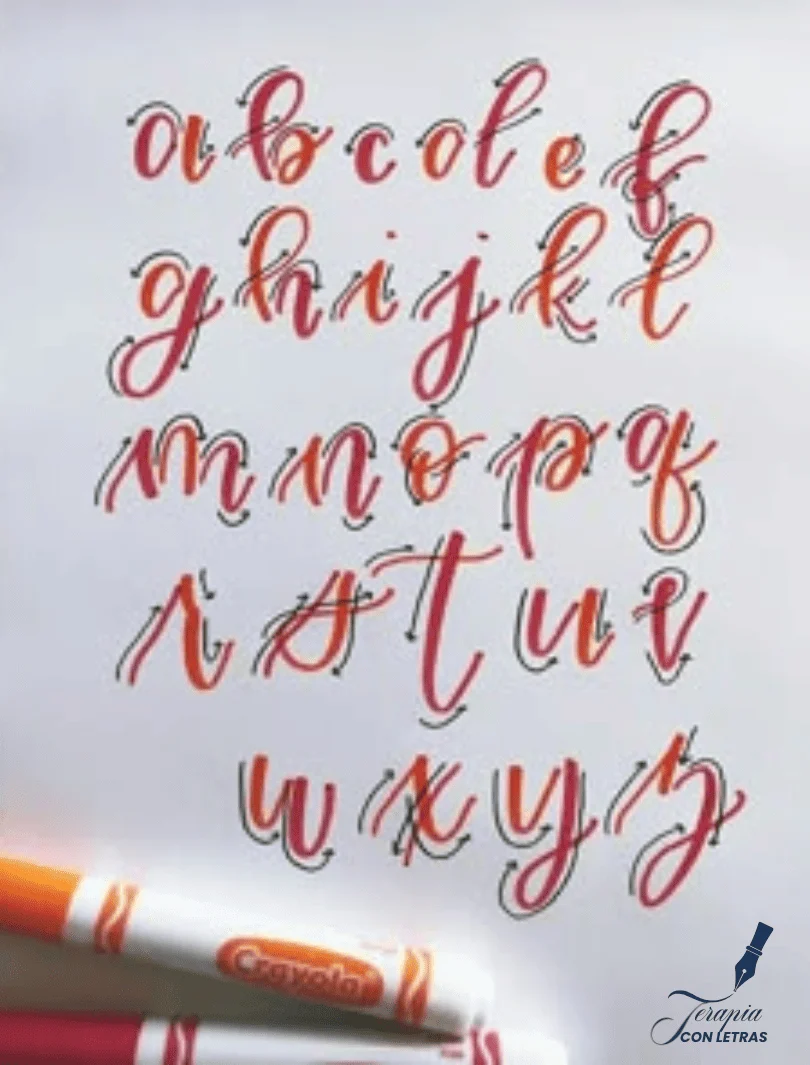 a b c d e f
g h i j k l
m n o p q
r s t u v
w x y z
Crayola
Terapia
CON LETRAS